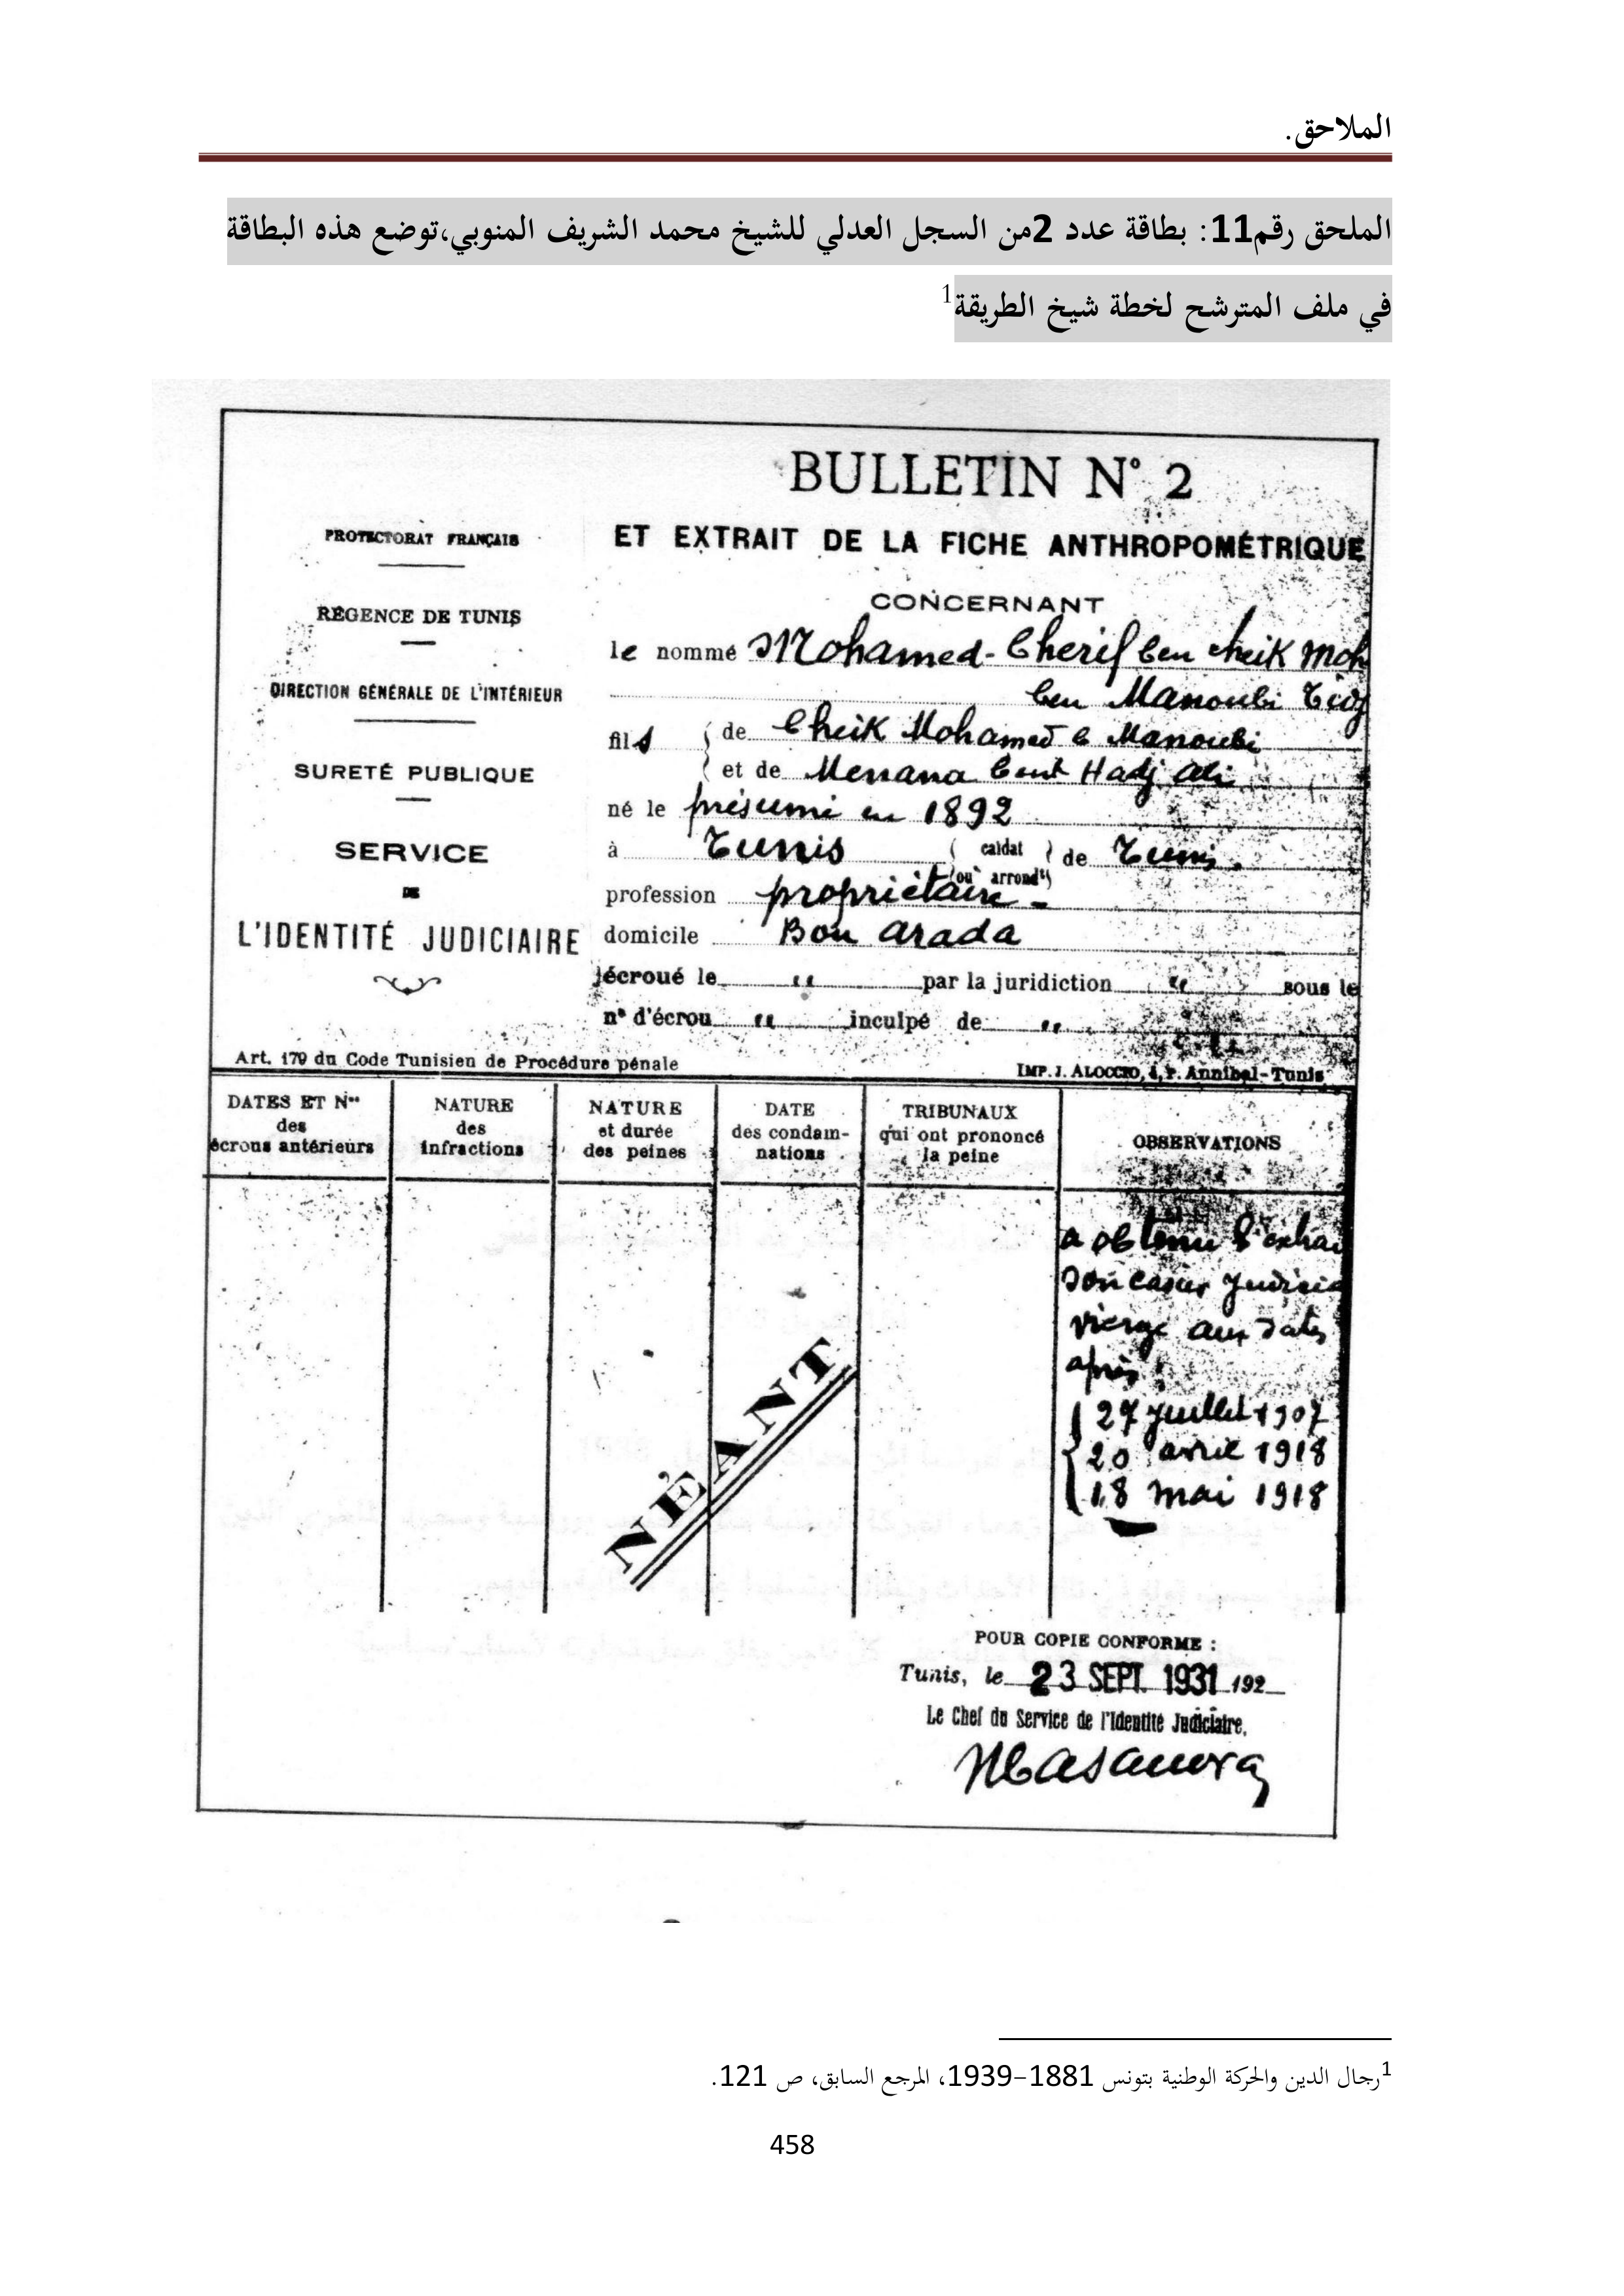 الملاحق.
الملحق رقم11: بطاقة عدد 2من السجل العدلي للشيخ محمد الشريف المنوبي،توضع هذه البطاقة
في ملف المترشح لخطة شيخ الطريقة1
BULLETIN N° 2
ET EXTRAIT DE LA FICHE ANTHROPOMÉTRIQUE
CONCERNANT
PROTECTORAT FRANÇAIS
RÉGENCE DE TUNIS
DIRECTION GÉNÉRALE DE L'INTÉRIEUR
SURETÉ PUBLIQUE
SERVICE
DE
L'IDENTITÉ JUDICIAIRE
le nommé Mohamed-Cherif ben cheik Moh
ben Manoubi
fils de Cheik Mohamed b Manoubi
et de Menana bent Hadj Ali
né le présumé en 1892
à Tunis (caïdat ou arrondt) de Tunis.
profession propriétaire-
domicile Bou arada
écroué le " par la juridiction " sous le
n° d'écrou " inculpé de "
Art. 179 du Code Tunisien de Procédure pénale
IMP. J. ALOCCIO, R. Annibal-Tunis
DATES ET Nos
des
écrous antérieurs
NATURE
des
infractions
NATURE
et durée
des peines
DATE
des condam-
nations
TRIBUNAUX
qui ont prononcé
la peine
OBSERVATIONS
NÉANT
a obtenu l'extrai
son casier judicia
vierge aux dates
après :
27 juillet 1907
20 avril 1918
18 mai 1918
POUR COPIE CONFORME :
Tunis, le 23 SEPT. 1931 192
Le Chef du Service de l'Identité Judiciaire,
1رجال الدين والحركة الوطنية بتونس 1881-1939، المرجع السابق، ص 121.
458